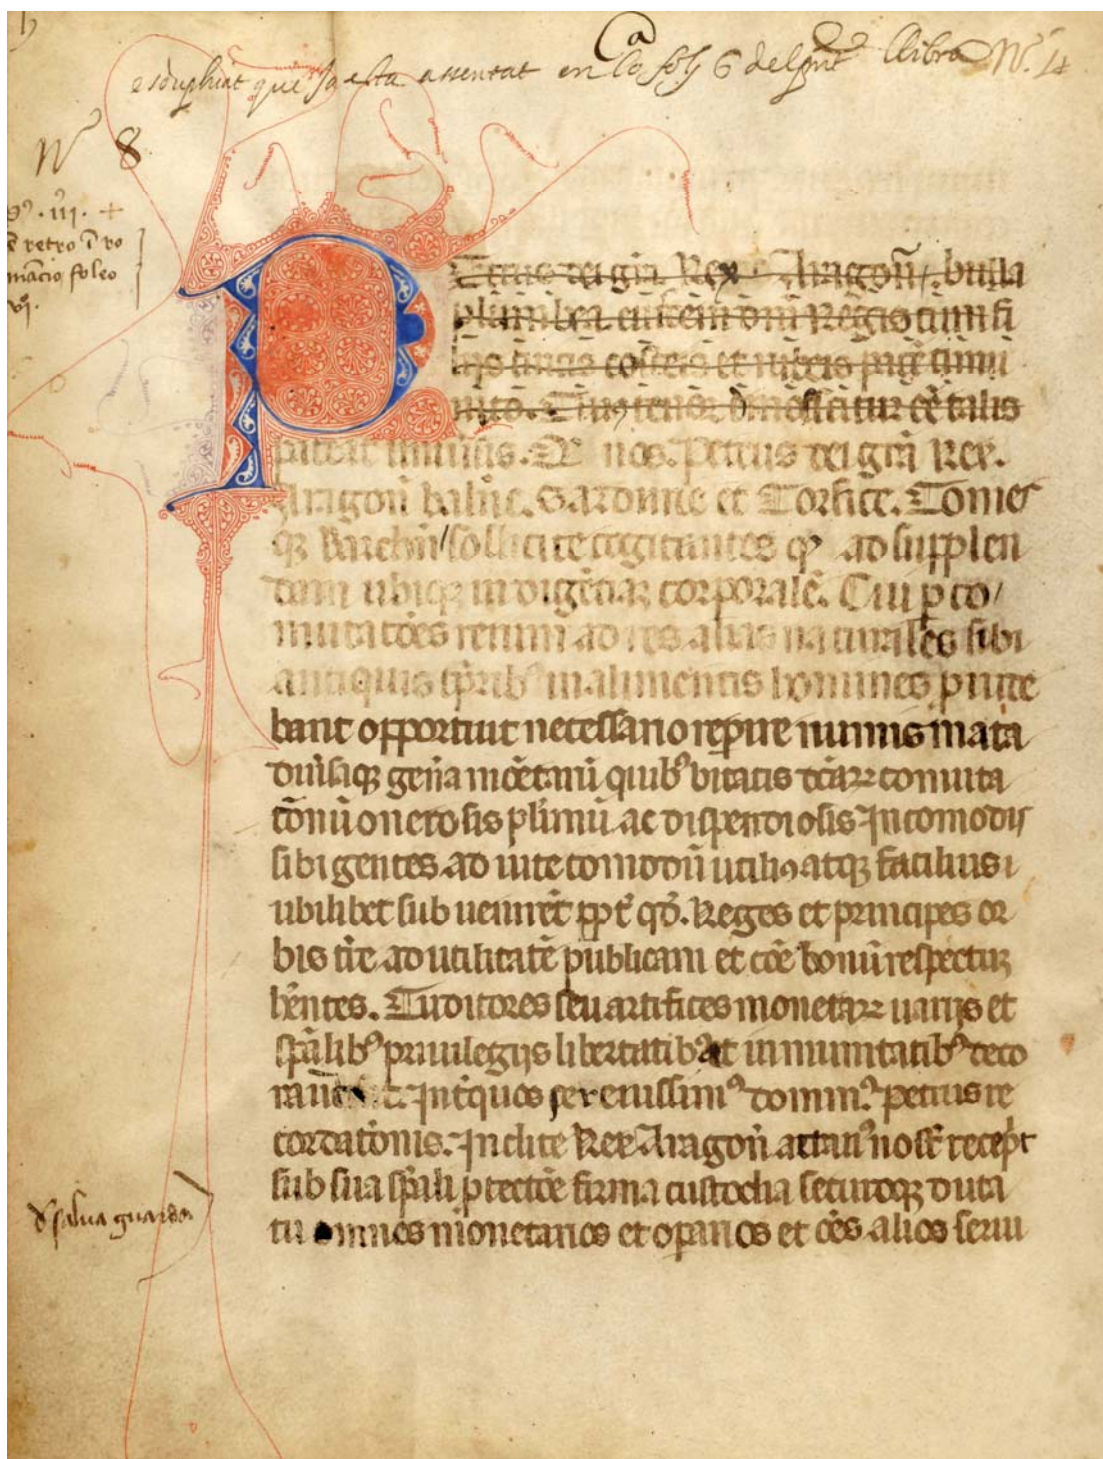 esduphicat que ja esta assentat en lo folj 6 del pnt llibra Nº. 14
Nº 8
retro
foleo
vj.
Petrus dei gr̃a Rex Aragoñ. bulla
plumbea eiusdem dñi Regis cum fi
lijs
mito. Cuius tenor dinoscitur eẽ talis
nos. Petrus dei gr̃a Rex.
Aragoñ Sardinie et Corsice. Comes
qȝ Barchñ / sollicite cogitantes qȝ ad supplen
dam ubiqȝ indigẽciaȝ corporalẽ. Cui p co /
mutac̃oẽs rerum ad res alias naturales sibi
antiquis tp̃ribꝰ in alimentis homines puide
bant opportuit necessario rep̃ire numismata
diũsaqȝ geña monetarũ quibꝰ uitatis dc̃aꝝ comuta
c̃onũ onerosis plimũ ac dispendiosis Incomodis
sibi gentes ad uite comodũ utiliꝰ atqȝ facilius
ubilibet subuenirẽt ppt̃ qd̃. Reges et principes or
bis tr̃e ad utilitatẽ publicam et cõe bonũ respectuȝ
hñtes. Cuditores seu artifices monetaꝝ uarijs et
sp̃alibꝰ priuilegijs libertatibꝰ et inmunitatibꝰ deco
Int̃ quos serenissimꝰ dominꝰ petrus re
cordac̃onis. Inclite Rex Aragoñ attauꝰ nost̃ recepit
sub sua sp̃ali ptecc̃õe firma custodia securoqȝ duca
tu omnes monetarios et oparios et oẽs alios serui
d salua guarda